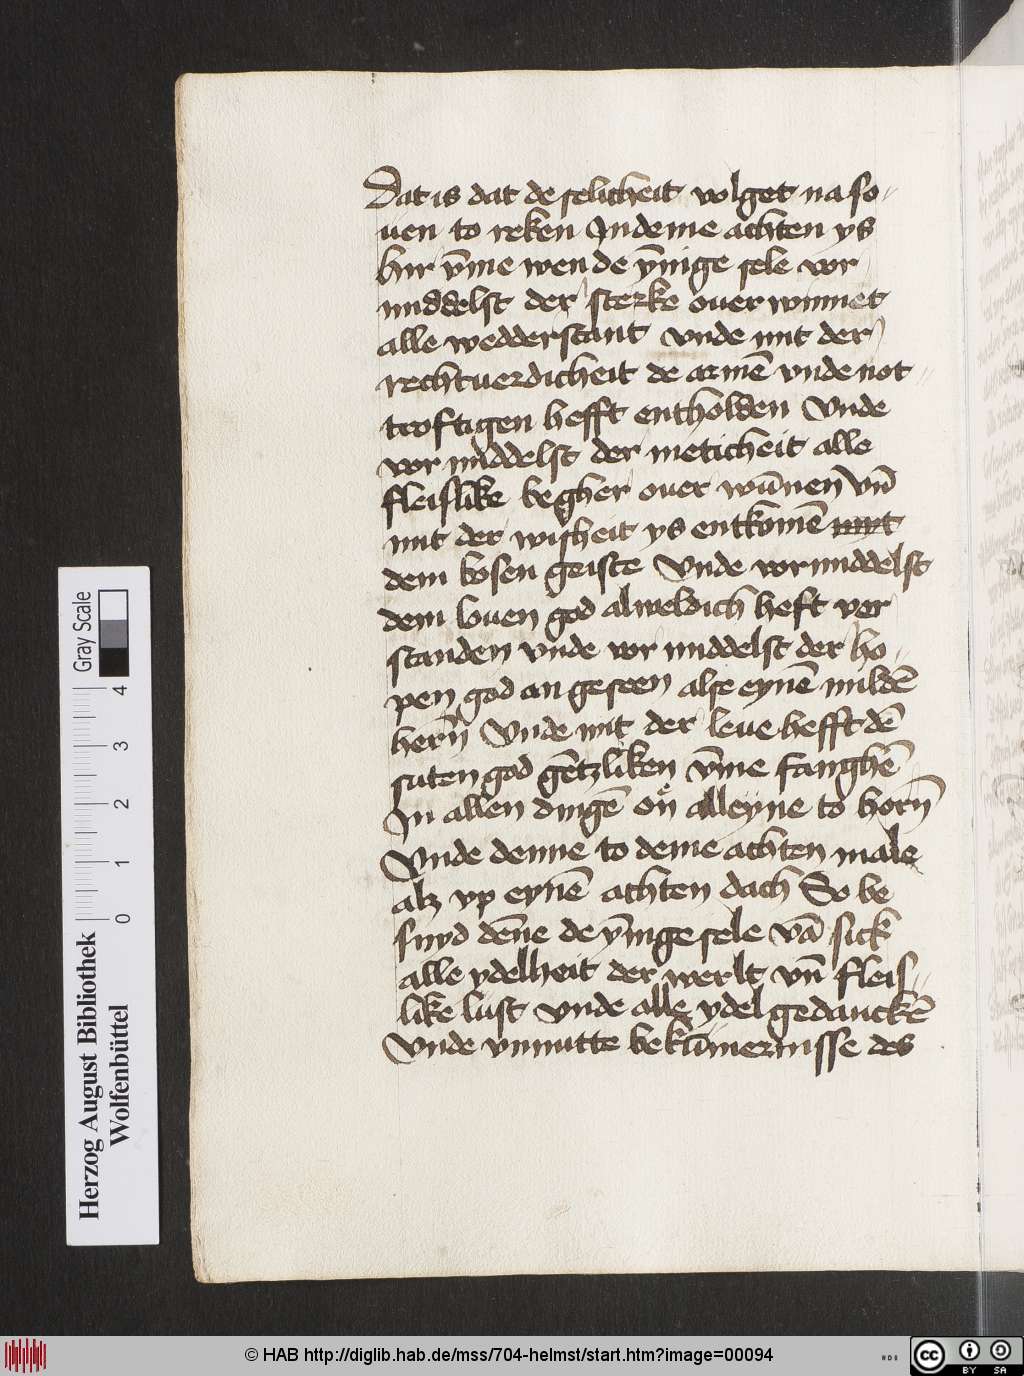 Dat is dat de selicheit volget na so-
uen to reken Indeme achten ys
hir v̄me wen de ȳnige sele vor
middelst der sterke ouer winnet
alle wedderstant vnde mit der
rechtuerdicheit de armē vnde not-
troftigen hefft entholden Vnde
vor middelst der meticheit alle
fleislike begher ouer wūnen Vn̄
mit der wisheit ys entkomē myt
dem bosen geiste Vnde vormiddelst
dem louen god alweldich heft vor
standen vnde vor middelst der ho-
pen god an geseen alse eynē mildē
hern̄ Vnde mit der leue hefft dē
suten god gētzliken v̄me fanghē
In allen dingē on̄ alleyne to horn̄
Vnde denne to deme achten male
alz vp eynē achten dach So be
snyd dēne de ȳnige sele vā sick
alle ydelheit der werlt vn̄ fleis-
like lust vnde alle ydel gedanckē
Vnde vnnutte bekūmernisse des
Gray Scale
4
3
2
1
0
Herzog August Bibliothek
Wolfenbüttel
© HAB http://diglib.hab.de/mss/704-helmst/start.htm?image=00094
cc
BY SA